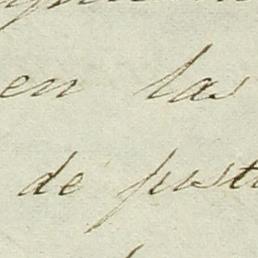 en las
de just